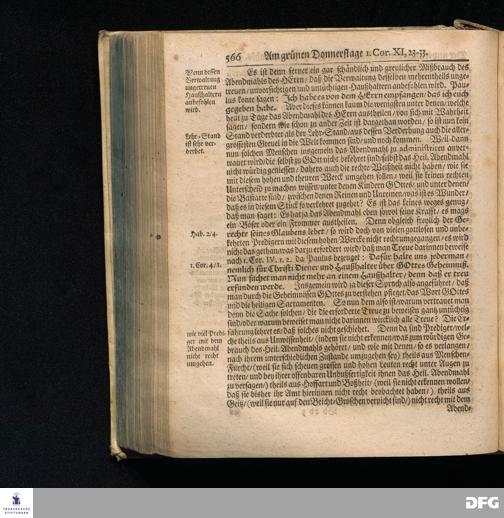 566 Am grünen Donnerstage 1. Cor. XI, 23-33.
Wenn dessen
Verwaltung
ungetreuen
Haußhaltern
anbefohlen
wird.
Lehr-Stand
ist sehr ver-
derbet.
Hab. 2/4.
1. Cor. 4/1.
wie viel Predi-
ger mit dem
Abendmahl
nicht recht
umgehen.
Es ist denn ferner ein gar schändlich und greulicher Mißbrauch des
Abendmahls des HErrn/ daß die Verwaltung desselben mehrentheils unge-
treuen/unvorsichtigen und untüchtigen Haußhaltern anbefohlen wird. Pau-
lus konte sagen: Ich habe es von dem HErrn empfangen/ das ich euch
gegeben habe. Aber dieses können kaum die wenigsten unter denen/ welche
heut zu Tage das Abendmahl des HErrn austheilen/ von sich mit Wahrheit
sagen/ sondern wie schon zu ander Zeit ist dargethan worden/ so ist nun kein
Stand verderbter als der Lehr-Stand/ aus dessen Verderbung auch die aller-
grössesten Greuel in die Welt kommen sind/ und noch kommen. Weil dann
nun solchen Menschen insgemein das Abendmahl zu administriren anver-
trauet wird/ die selbst zu GOtt nicht bekehret sind/ selbst das Heil. Abendmahl
nicht würdig geniessen/ dahero auch die rechte Weißheit nicht haben/ wie sie
mit diesem hohen und theuren Werck umgehen sollen/ weil sie keinen rechten
Unterscheid zu machen wissen/ unter denen Kindern GOttes/ und unter denen/
die Bastarte sind/ zwischen denen Reinen und Unreinen/ was ist es Wunder/
daß es in diesem Stück so verkehret zugehet? Es ist das keines weges genug/
daß man saget: Es hat ja das Abendmahl eben sowol seine Krafft/ es mags
ein Böser oder ein Frommer austheilen. Denn obgleich freylich der Ge-
rechte seines Glaubens lebet/ so wird doch von vielen gottlosen und unbe-
kehrten Predigern mit diesem hohen Wercke nicht recht umgegangen/ es wird
nicht das gethan/ was darzu erfordert wird/ daß man Treue darinnen beweise
nach 1. Cor. IV. 1. 2. da Paulus bezeuget: Dafür halte uns jederman/
nemlich für Christi Diener und Haußhalter über GOttes Geheimniß.
Nun suchet man nicht mehr an einem Haußhalter/ denn daß er treu
erfunden werde. Insgemein wird ja dieser Spruch also angeführet/ daß
man durch die Geheimnissen GOttes zu verstehen pfleget/ das Wort GOttes
und die heiligen Sacramenten. So nun dem also ist/ warum vertrauet man
denn die Sache solchen/ die die erforderte Treue zu beweisen gantz untüchtig
sind/ oder warum beweiset man nicht darinnen wircklich alle Treue? Die Er-
fahrung lehret es/ daß solches nicht geschiehet. Denn da sind Prediger/ wel-
che theils aus Unwissenheit/ (indem sie nicht erkennen/ was zum würdigen Ge-
brauch des Heil. Abendmahls gehöret/ und wie mit denen/ so es verlangen/
nach ihrem unterschiedlichen Zustande umzugehen sey) theils aus Menschen-
Furcht/ (weil sie sich scheuen grossen und hohen Leuten recht unter Augen zu
treten/ und bey ihrer offenbaren Unbußfertigkeit ihnen das Heil. Abendmahl
zu versagen/) theils aus Hoffart und Boßheit/ (weil sie nicht erkennen wollen/
daß sie bißher ihr Amt hierinnen nicht recht beobachtet haben/) theils aus
Geitz/ (weil sie nur auf den Beicht-Groschen verpicht sind/) nicht recht mit dem
Abend-
FRANCKESCHE
STIFTUNGEN
DFG